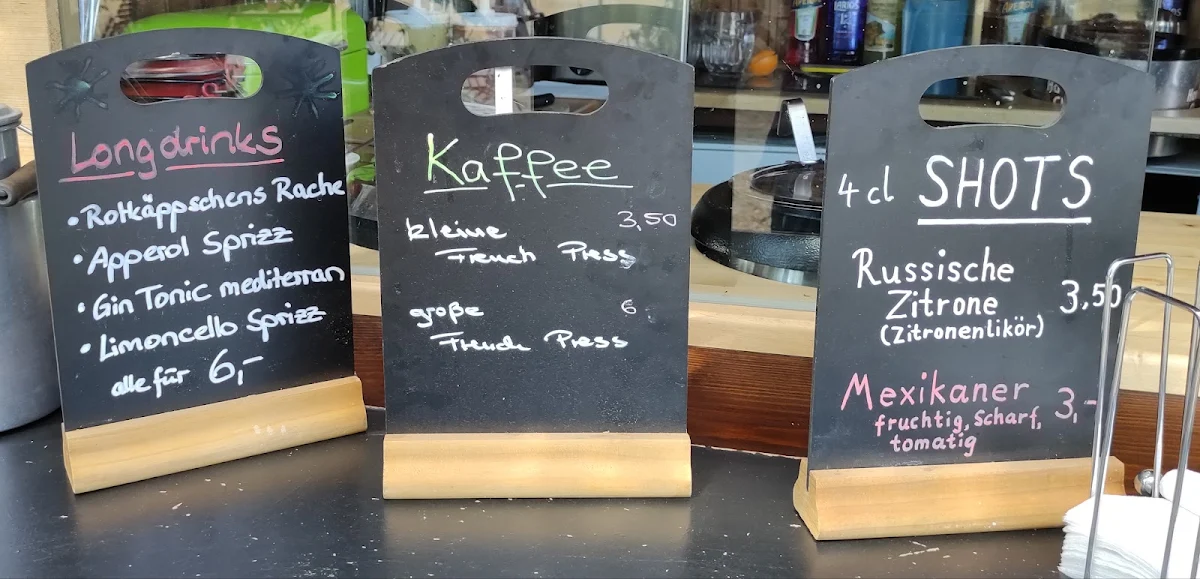 Longdrinks
• Rotkäppschens Rache
• Apperol Sprizz
• Gin Tonic mediterran
• Limoncello Sprizz
alle für 6,-
Kaffee
kleine 3,50
French Press
große 6
French Press
4 cl SHOTS
Russische
Zitrone 3,50
(Zitronenlikör)
Mexikaner 3,-
fruchtig, scharf,
tomatig